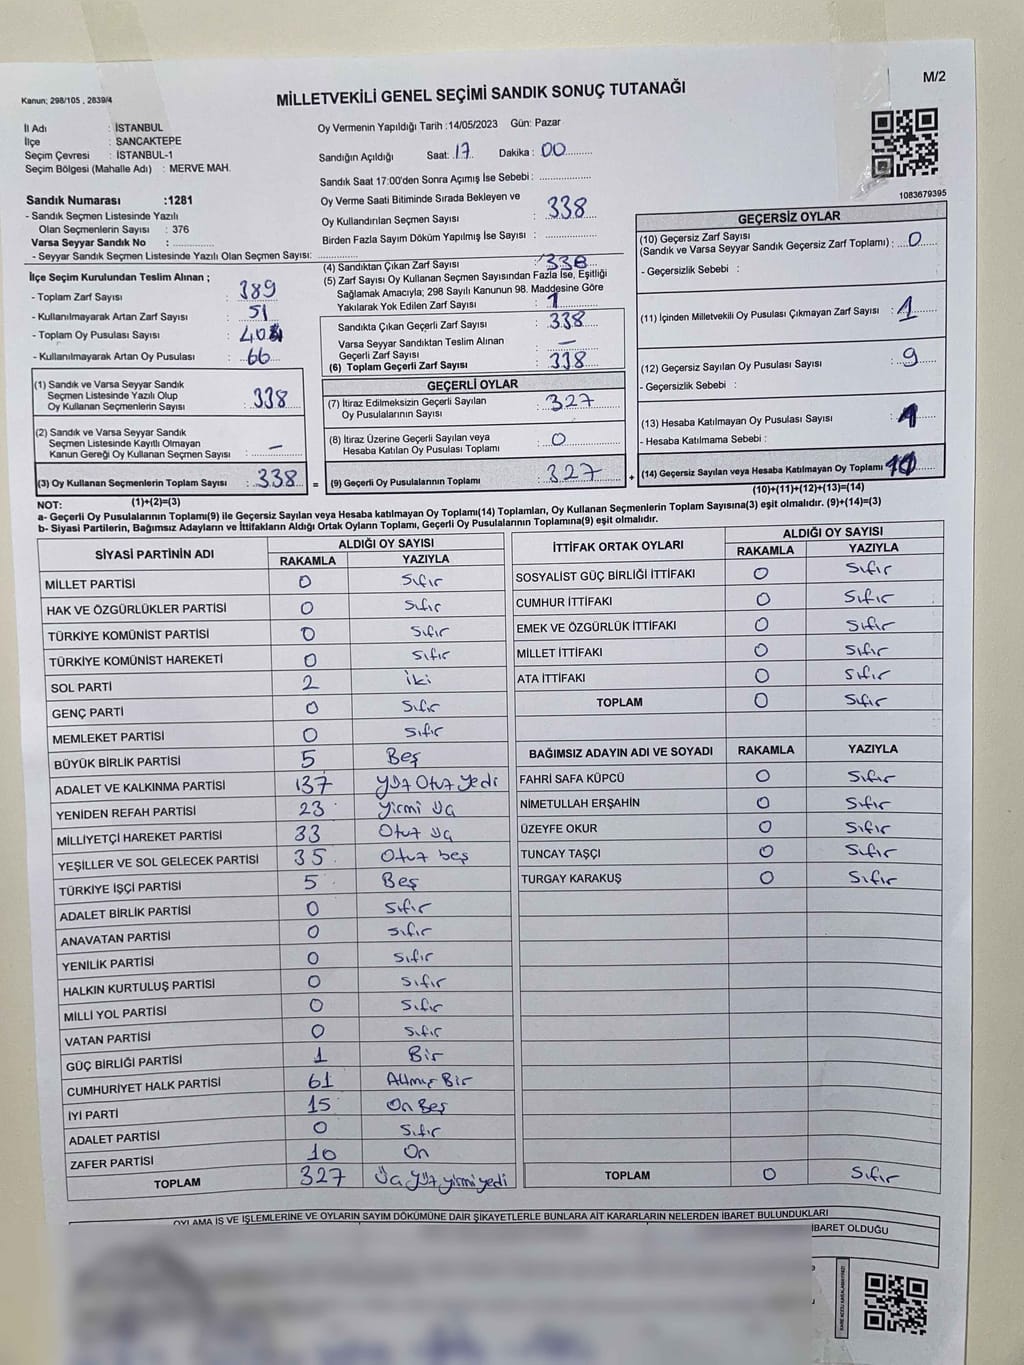 Kanun; 298/105 , 2839/4
MİLLETVEKİLİ GENEL SEÇİMİ SANDIK SONUÇ TUTANAĞI
M/2
İl Adı : İSTANBUL
İlçe : SANCAKTEPE
Seçim Çevresi : İSTANBUL-1
Seçim Bölgesi (Mahalle Adı) : MERVE MAH.
Sandık Numarası :1281
- Sandık Seçmen Listesinde Yazılı
Olan Seçmenlerin Sayısı : 376
Varsa Seyyar Sandık No :
- Seyyar Sandık Seçmen Listesinde Yazılı Olan Seçmen Sayısı:
Oy Vermenin Yapıldığı Tarih :14/05/2023 Gün: Pazar
Sandığın Açıldığı Saat: 17 Dakika: 00
Sandık Saat 17:00'den Sonra Açımış İse Sebebi :
Oy Verme Saati Bitiminde Sırada Bekleyen ve
Oy Kullandırılan Seçmen Sayısı : 338
Birden Fazla Sayım Döküm Yapılmış İse Sayısı :
1083679395
İlçe Seçim Kurulundan Teslim Alınan ;
- Toplam Zarf Sayısı : 389
- Kullanılmayarak Artan Zarf Sayısı : 51
- Toplam Oy Pusulası Sayısı :
- Kullanılmayarak Artan Oy Pusulası : 66
(1) Sandık ve Varsa Seyyar Sandık
Seçmen Listesinde Yazılı Olup
Oy Kullanan Seçmenlerin Sayısı : 338
(2) Sandık ve Varsa Seyyar Sandık
Seçmen Listesinde Kayıtlı Olmayan
Kanun Gereği Oy Kullanan Seçmen Sayısı : -
(3) Oy Kullanan Seçmenlerin Toplam Sayısı : 338
(1)+(2)=(3)
(4) Sandıktan Çıkan Zarf Sayısı : 338
(5) Zarf Sayısı Oy Kullanan Seçmen Sayısından Fazla İse, Eşitliği
Sağlamak Amacıyla; 298 Sayılı Kanunun 98. Maddesine Göre
Yakılarak Yok Edilen Zarf Sayısı : 1
Sandıkta Çıkan Geçerli Zarf Sayısı : 338
Varsa Seyyar Sandıktan Teslim Alınan
Geçerli Zarf Sayısı : -
(6) Toplam Geçerli Zarf Sayısı : 338
GEÇERLİ OYLAR
(7) İtiraz Edilmeksizin Geçerli Sayılan
Oy Pusulalarının Sayısı : 327
(8) İtiraz Üzerine Geçerli Sayılan veya
Hesaba Katılan Oy Pusulası Toplamı : 0
= (9) Geçerli Oy Pusulalarının Toplamı : 327 +
GEÇERSİZ OYLAR
(10) Geçersiz Zarf Sayısı
(Sandık ve Varsa Seyyar Sandık Geçersiz Zarf Toplamı) : 0
- Geçersizlik Sebebi :
(11) İçinden Milletvekili Oy Pusulası Çıkmayan Zarf Sayısı : 1
(12) Geçersiz Sayılan Oy Pusulası Sayısı : 9
- Geçersizlik Sebebi :
(13) Hesaba Katılmayan Oy Pusulası Sayısı : 1
- Hesaba Katılmama Sebebi :
(14) Geçersiz Sayılan veya Hesaba Katılmayan Oy Toplamı
(10)+(11)+(12)+(13)=(14)
NOT:
a- Geçerli Oy Pusulalarının Toplamı(9) ile Geçersiz Sayılan veya Hesaba katılmayan Oy Toplamı(14) Toplamları, Oy Kullanan Seçmenlerin Toplam Sayısına(3) eşit olmalıdır. (9)+(14)=(3)
b- Siyasi Partilerin, Bağımsız Adayların ve İttifakların Aldığı Ortak Oyların Toplamı, Geçerli Oy Pusulalarının Toplamına(9) eşit olmalıdır.
SİYASİ PARTİNİN ADI ALDIĞI OY SAYISI
RAKAMLA YAZIYLA
MİLLET PARTİSİ 0 Sıfır
HAK VE ÖZGÜRLÜKLER PARTİSİ 0 Sıfır
TÜRKİYE KOMÜNİST PARTİSİ 0 Sıfır
TÜRKİYE KOMÜNİST HAREKETİ 0 Sıfır
SOL PARTİ 2 iki
GENÇ PARTİ 0 Sıfır
MEMLEKET PARTİSİ 0 Sıfır
BÜYÜK BİRLİK PARTİSİ 5 Beş
ADALET VE KALKINMA PARTİSİ 137 Yüz Otuz Yedi
YENİDEN REFAH PARTİSİ 23 Yirmi Üç
MİLLİYETÇİ HAREKET PARTİSİ 33 Otuz Üç
YEŞİLLER VE SOL GELECEK PARTİSİ 35 Otuz beş
TÜRKİYE İŞÇİ PARTİSİ 5 Beş
ADALET BİRLİK PARTİSİ 0 Sıfır
ANAVATAN PARTİSİ 0 Sıfır
YENİLİK PARTİSİ 0 Sıfır
HALKIN KURTULUŞ PARTİSİ 0 Sıfır
MİLLİ YOL PARTİSİ 0 Sıfır
VATAN PARTİSİ 0 Sıfır
GÜÇ BİRLİĞİ PARTİSİ 1 Bir
CUMHURİYET HALK PARTİSİ 61 Altmış Bir
İYİ PARTİ 15 On Beş
ADALET PARTİSİ 0 Sıfır
ZAFER PARTİSİ 10 On
TOPLAM 327 Üç Yüz yirmi yedi
İTTİFAK ORTAK OYLARI ALDIĞI OY SAYISI
RAKAMLA YAZIYLA
SOSYALİST GÜÇ BİRLİĞİ İTTİFAKI 0 Sıfır
CUMHUR İTTİFAKI 0 Sıfır
EMEK VE ÖZGÜRLÜK İTTİFAKI 0 Sıfır
MİLLET İTTİFAKI 0 Sıfır
ATA İTTİFAKI 0 Sıfır
TOPLAM 0 Sıfır
BAĞIMSIZ ADAYIN ADI VE SOYADI RAKAMLA YAZIYLA
FAHRİ SAFA KÜPCÜ 0 Sıfır
NİMETULLAH ERŞAHİN 0 Sıfır
ÜZEYFE OKUR 0 Sıfır
TUNCAY TAŞÇI 0 Sıfır
TURGAY KARAKUŞ 0 Sıfır
TOPLAM 0 Sıfır
OYLAMA İŞ VE İŞLEMLERİNE VE OYLARIN SAYIM DÖKÜMÜNE DAİR ŞİKAYETLERLE BUNLARA AİT KARARLARIN NELERDEN İBARET BULUNDUKLARI
İBARET OLDUĞU